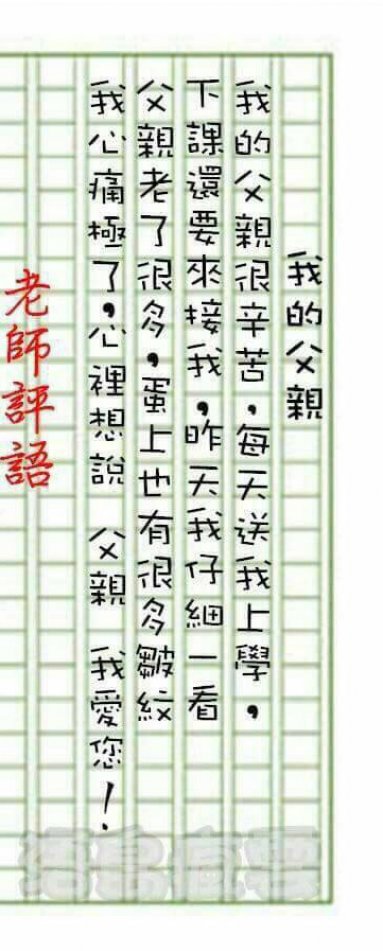 我的父親
我的父親很辛苦，每天送我上學，
下課還要來接我，昨天我仔細一看
父親老了很多，蛋上也有很多皺紋
我心痛極了，心裡想說 父親 我愛您！
老師評語